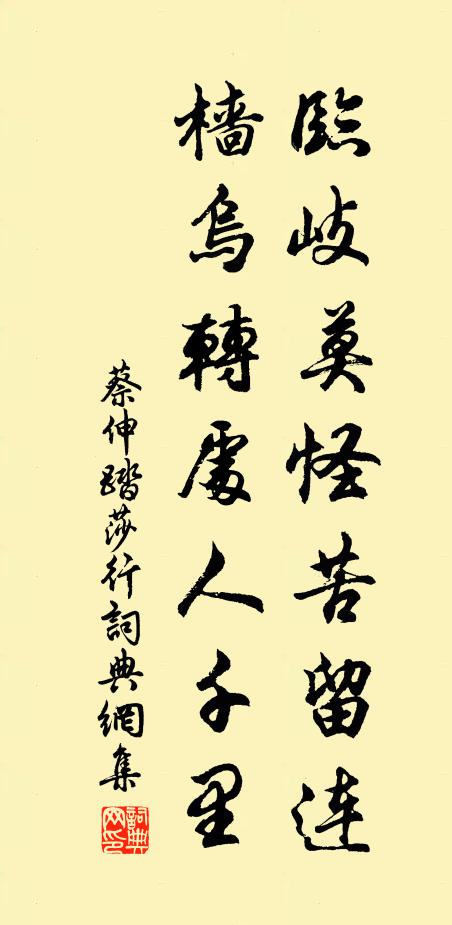 臨岐莫怪苦留連
檣烏轉處人千里
蔡伸踏莎行詞典網集
詞典
网印